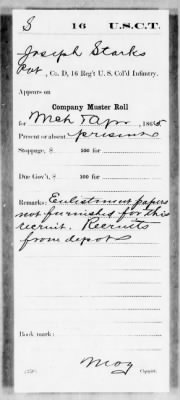 S 16 U.S.C.T.
Joseph Starks
Pvt, Co. D, 16 Reg't U. S. Col'd Infantry.
Appears on
Company Muster Roll
for Mch & Apr, 1865
Present or absent present
Stoppage, $ 100 for
Due Gov't, $ 100 for
Remarks: Enlistment papers
not furnished for this
recruit. Recruits
from depot
Book mark:
(358) Copyist.